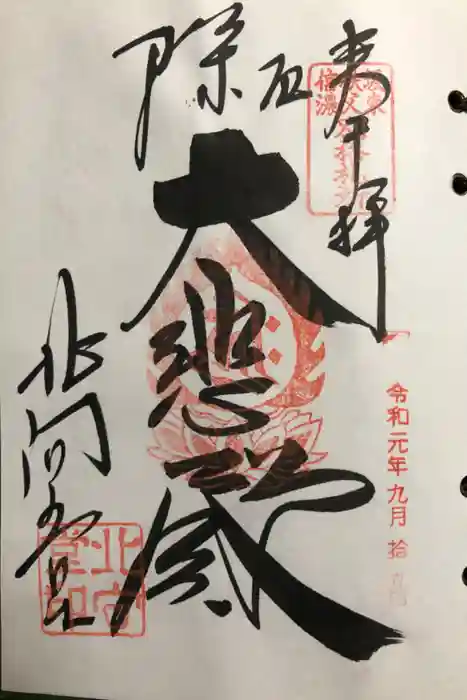 奉拝
厄除
大悲殿
北向観音
令和元年九月拾
信濃
北向
堂印